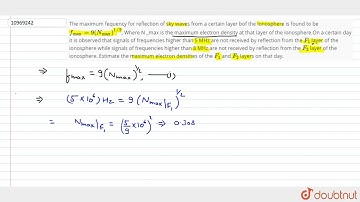 10969242
The maximum fequency for reflection of sky waves from a certain layer bof the ionosphere is found to be
f_max = 9(N_max)^{1/2}, Where N _max is the maximum electron density at that layer of the ionosphere.On a certain day
it is observed that signals of frequencies higher than 5 MHz are not received by reflection from the F_1 layer of the
ionosphere while signals of frequencies higher than 8 MHz are not received by reflection from the F_2 layer of the
ionosphere. Estimate the maximum electron densities of the F_1 and F_2 layers on that day.
⇒ f_max = 9 (N_max)^{1/2}, —(1)
⇒ (5 × 10^6) Hz = 9 (N_max|F_1)^{1/2}
= N_max|F_1 = (5/9 × 10^6)^2 ⇒ 0.308
doubtnut